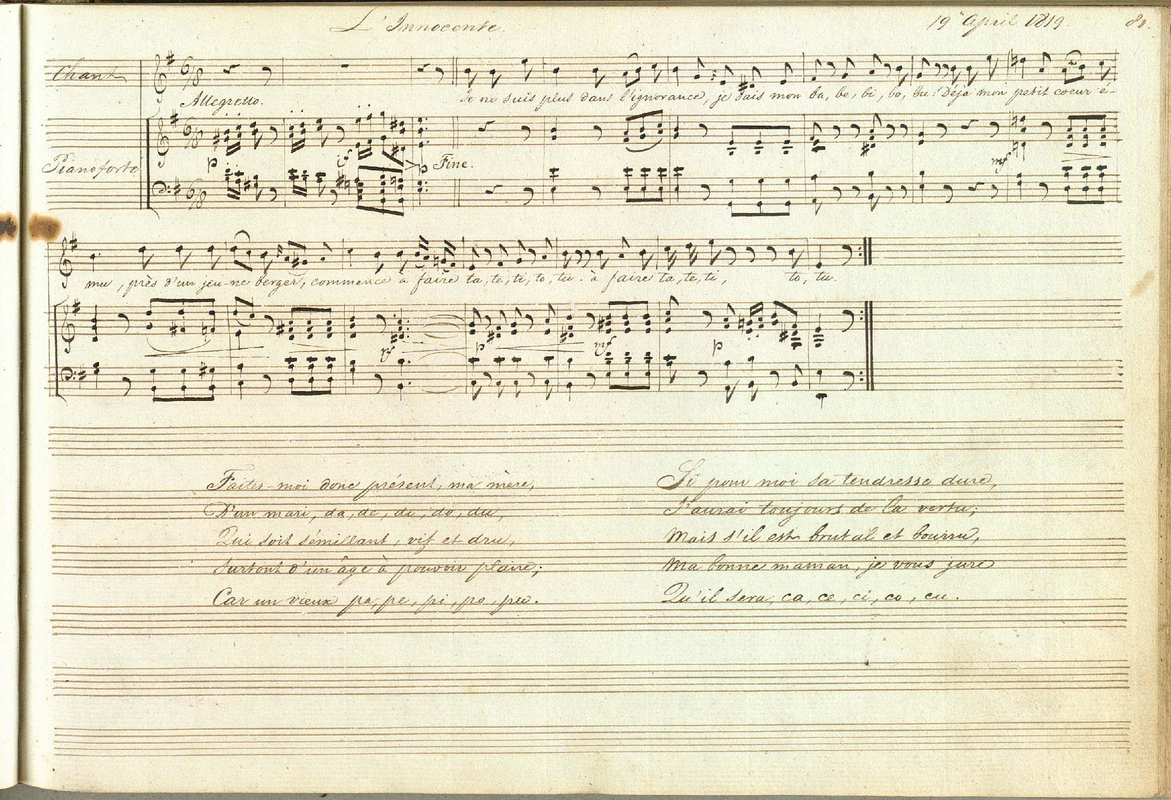 L'Innocente.
19 April 1819.
81.
Chant
Allegretto.
Je ne suis plus dans l'ignorance, je sais mon ba, be, bi, bo, bu: Déja mon petit coeur é-
Pianoforte
p
Fine.
mf
mu, près d'un jeu-ne berger, commence à faire ta, te, ti, to, tu. à faire ta, te, ti, to, tu.
mf
p
mf
p
Faites-moi donc présent, ma mère,
D'un mari, da, de, di, do, du,
Qui soit sémillant, vif et dru,
Surtout d'un âge à pouvoir plaire;
Car un vieux pa, pe, pi, po, pu.
Si pour moi sa tendresse dure,
J'aurai toujours de la vertu;
Mais s'il est brutal et bourru,
Ma bonne maman, je vous jure
Qu'il sera, ca, ce, ci, co, cu.